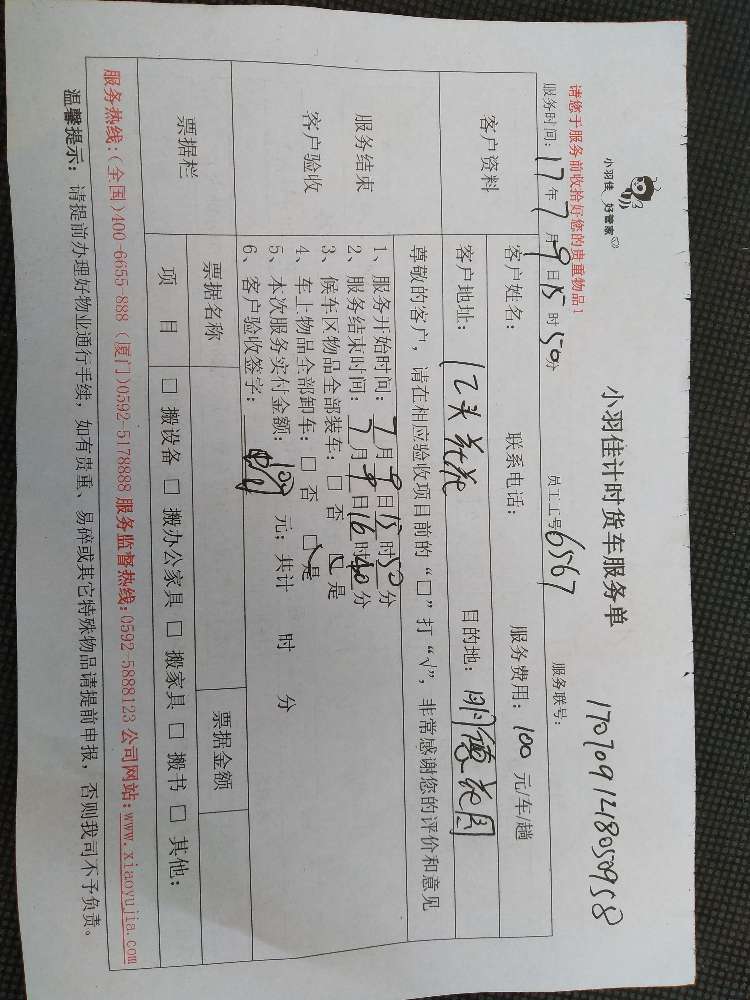 小羽佳 好管家
小羽佳计时货车服务单
170709148050958
请您于服务前收拾好您的贵重物品!
服务时间: 17 年 7 月 9 日 15 时 50 分 员工工号 6567 服务联号:
客户资料
客户姓名: 联系电话: 服务费用: 100 元/车/趟
客户地址: 目的地: 明德花园
服务结束
客户验收
尊敬的客户, 请在相应验收项目前的 “□” 打 “√”, 非常感谢您的评价和意见
1、服务开始时间: 7 月 9 日 15 时 50 分
2、服务结束时间: 7 月 9 日 16 时 40 分
3、候车区物品全部装车: □ 否 □ 是
4、车上物品全部卸车: □ 否 □ 是
5、本次服务实付金额: 100 元; 共计 时 分
6、客户验收签字:
票据栏
票据名称 票据金额
项 目 □ 搬设备 □ 搬办公家具 □ 搬家具 □ 搬书 □ 其他:
服务热线:(全国)400-6655-888 (厦门)0592-5178888 服务监督热线:0592-5888123 公司网站:www.xiaoyujia.com
温馨提示: 请提前办理好物业通行手续, 如有贵重、易碎或其它特殊物品请提前申报, 否则我司不予负责。